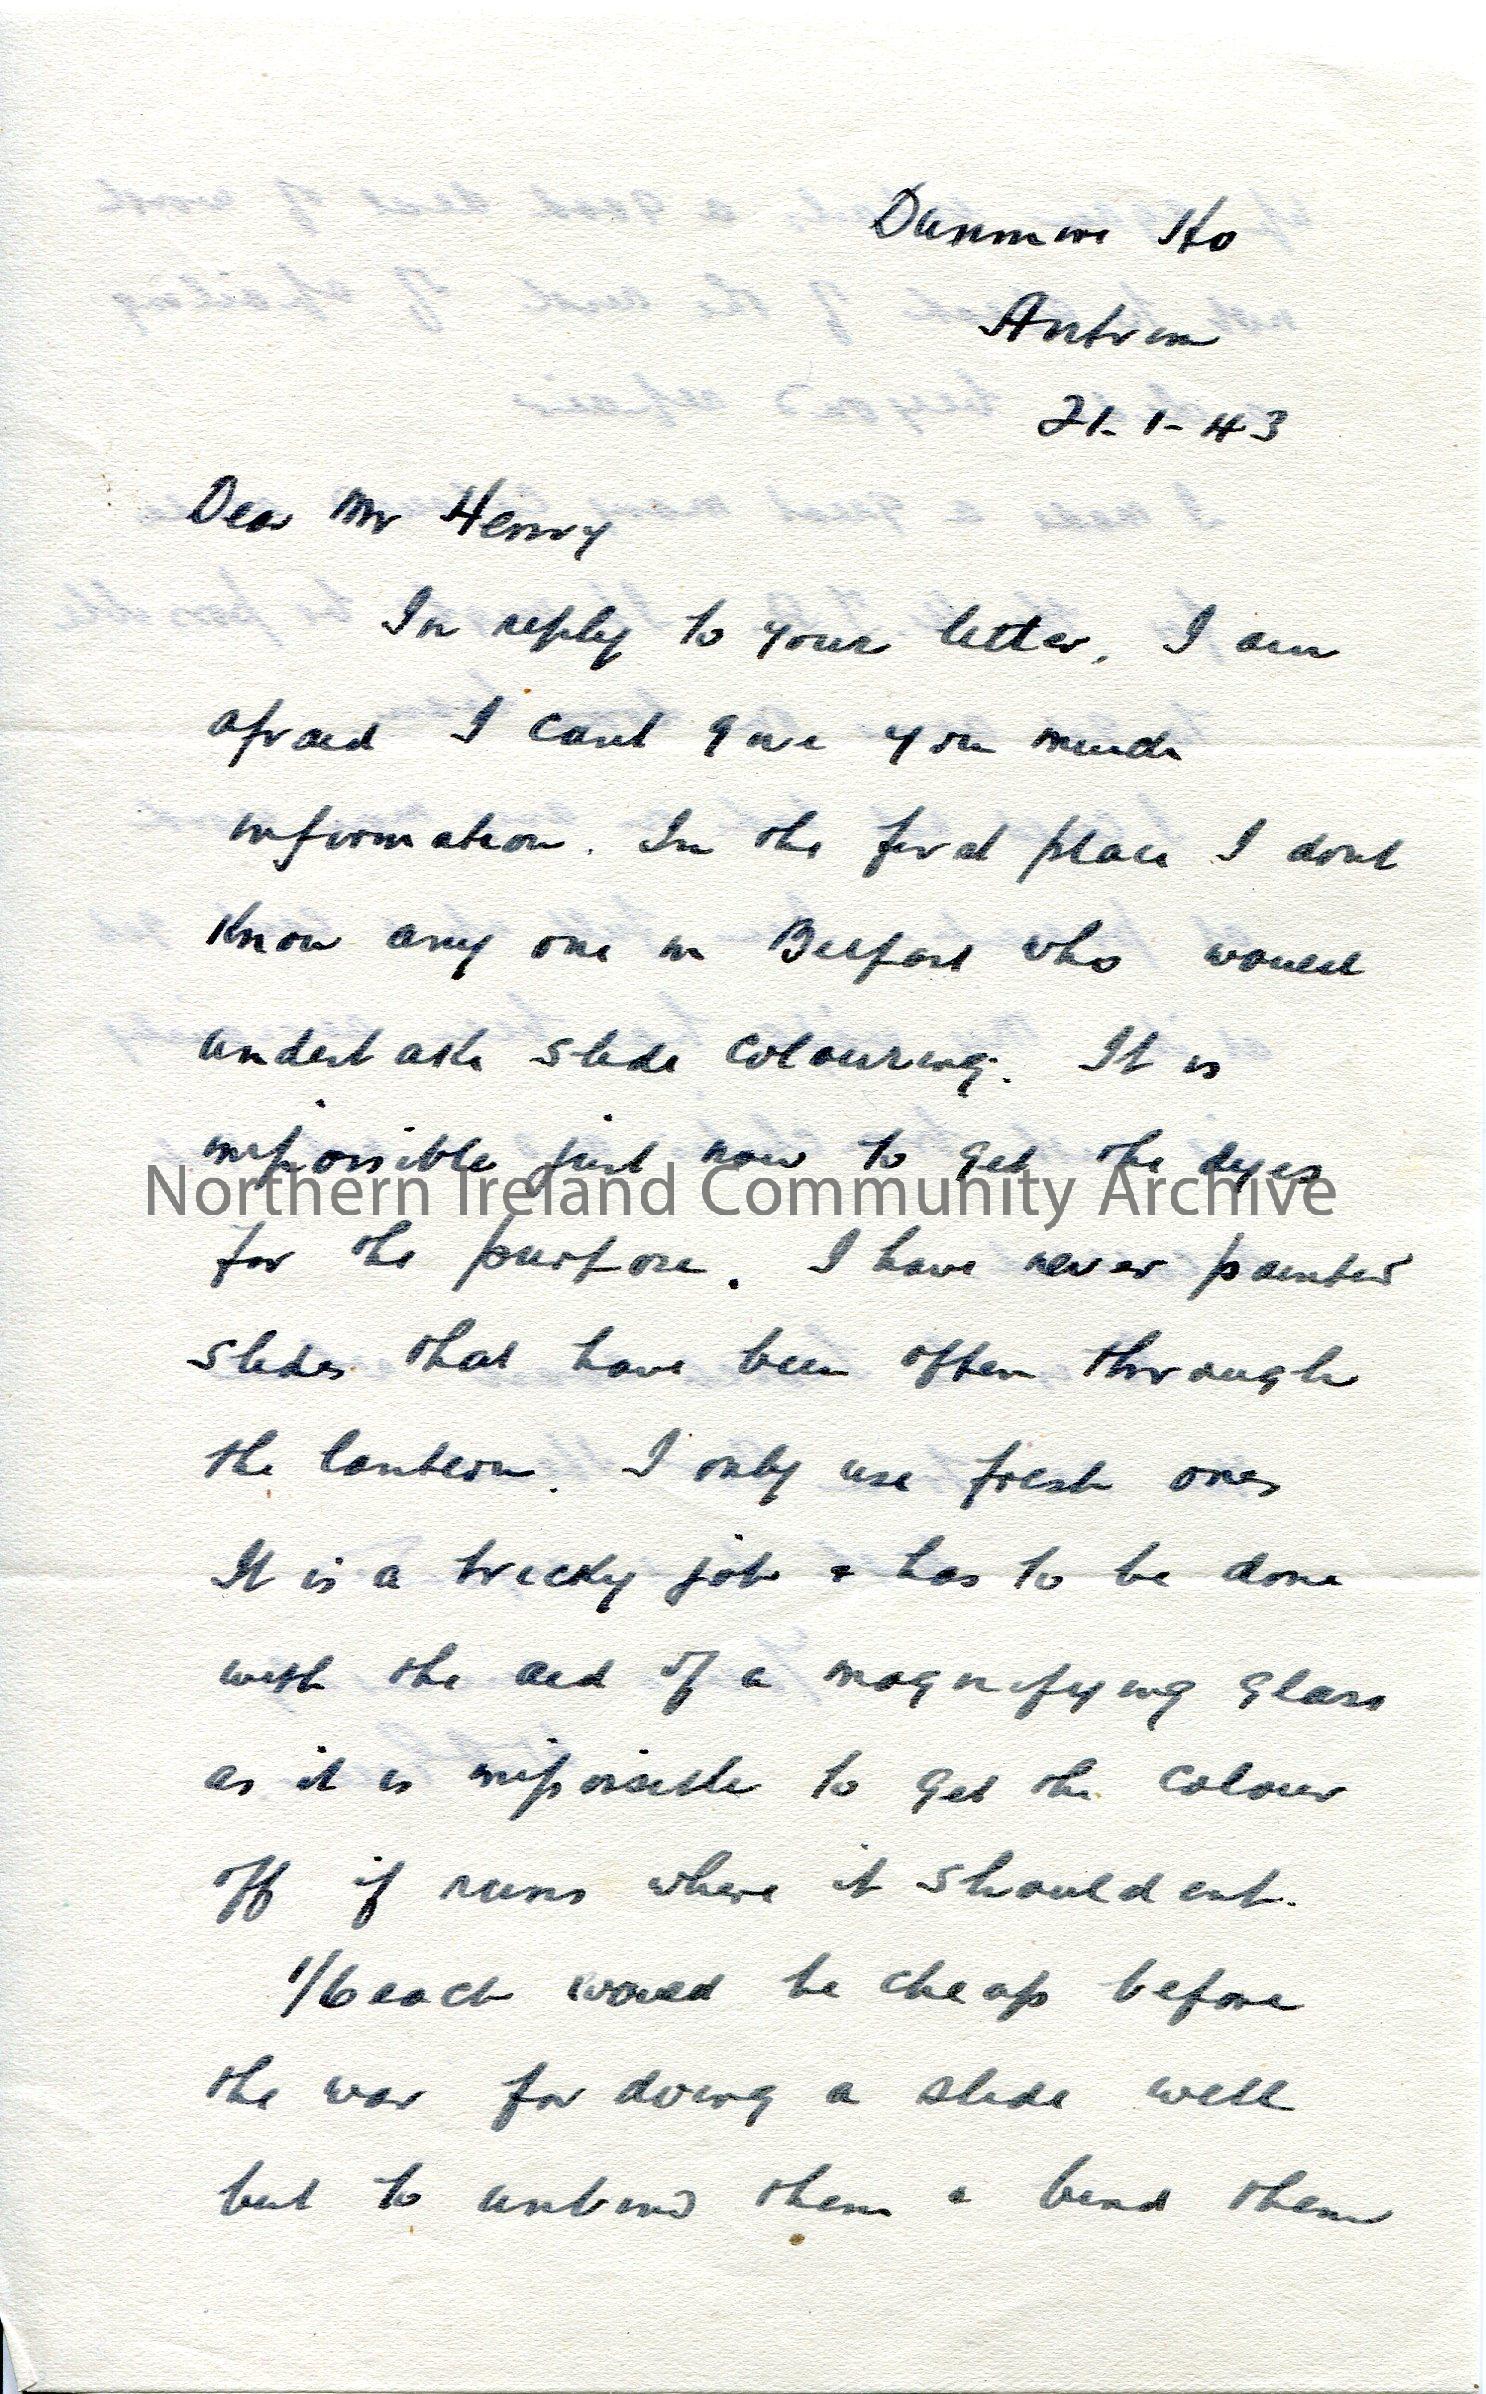 Dunmore Ho
Antrim
21-1-43
Dear Mr Henry
In reply to your letter, I am
afraid I cant give you much
information. In the first place I dont
know any one in Belfast who would
undertake slide colouring. It is
impossible just now to get the dyes
Northern Ireland Community Archive
for the purpose. I have never painted
slides that have been often through
the lantern. I only use fresh ones
It is a tricky job & has to be done
with the aid of a magnifying glass
as it is impossible to get the colour
off if runs where it shouldent.
1/6 each would be cheap before
the war for doing a slide well
but to unbind them & bind them